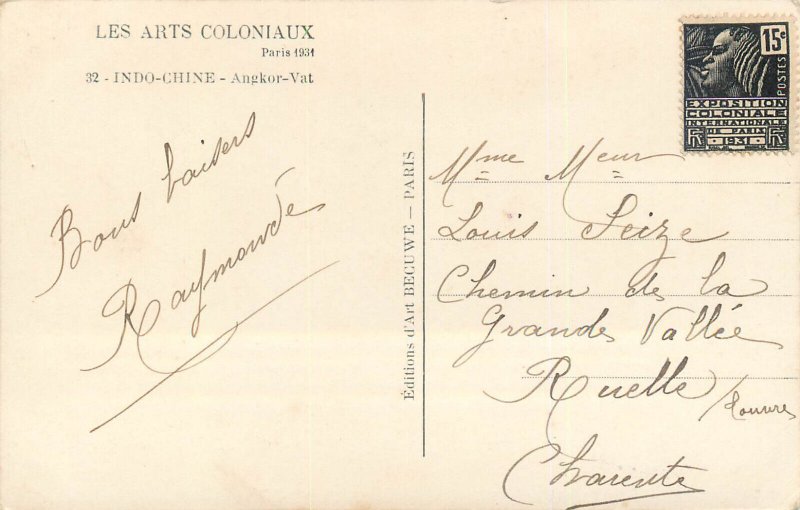 LES ARTS COLONIAUX
Paris 1931
32 - INDO-CHINE - Angkor-Vat
Bons baisers
Raymonde
Editions d'Art BEGUWE — PARIS
15c
POSTES
EXPOSITION
COLONIALE
INTERNATIONALE
DE PARIS
RF 1931 RF
Mme Meur
Louis Seize
Chemin de la
Grande Vallée
Ruelle /Touvre
Charente